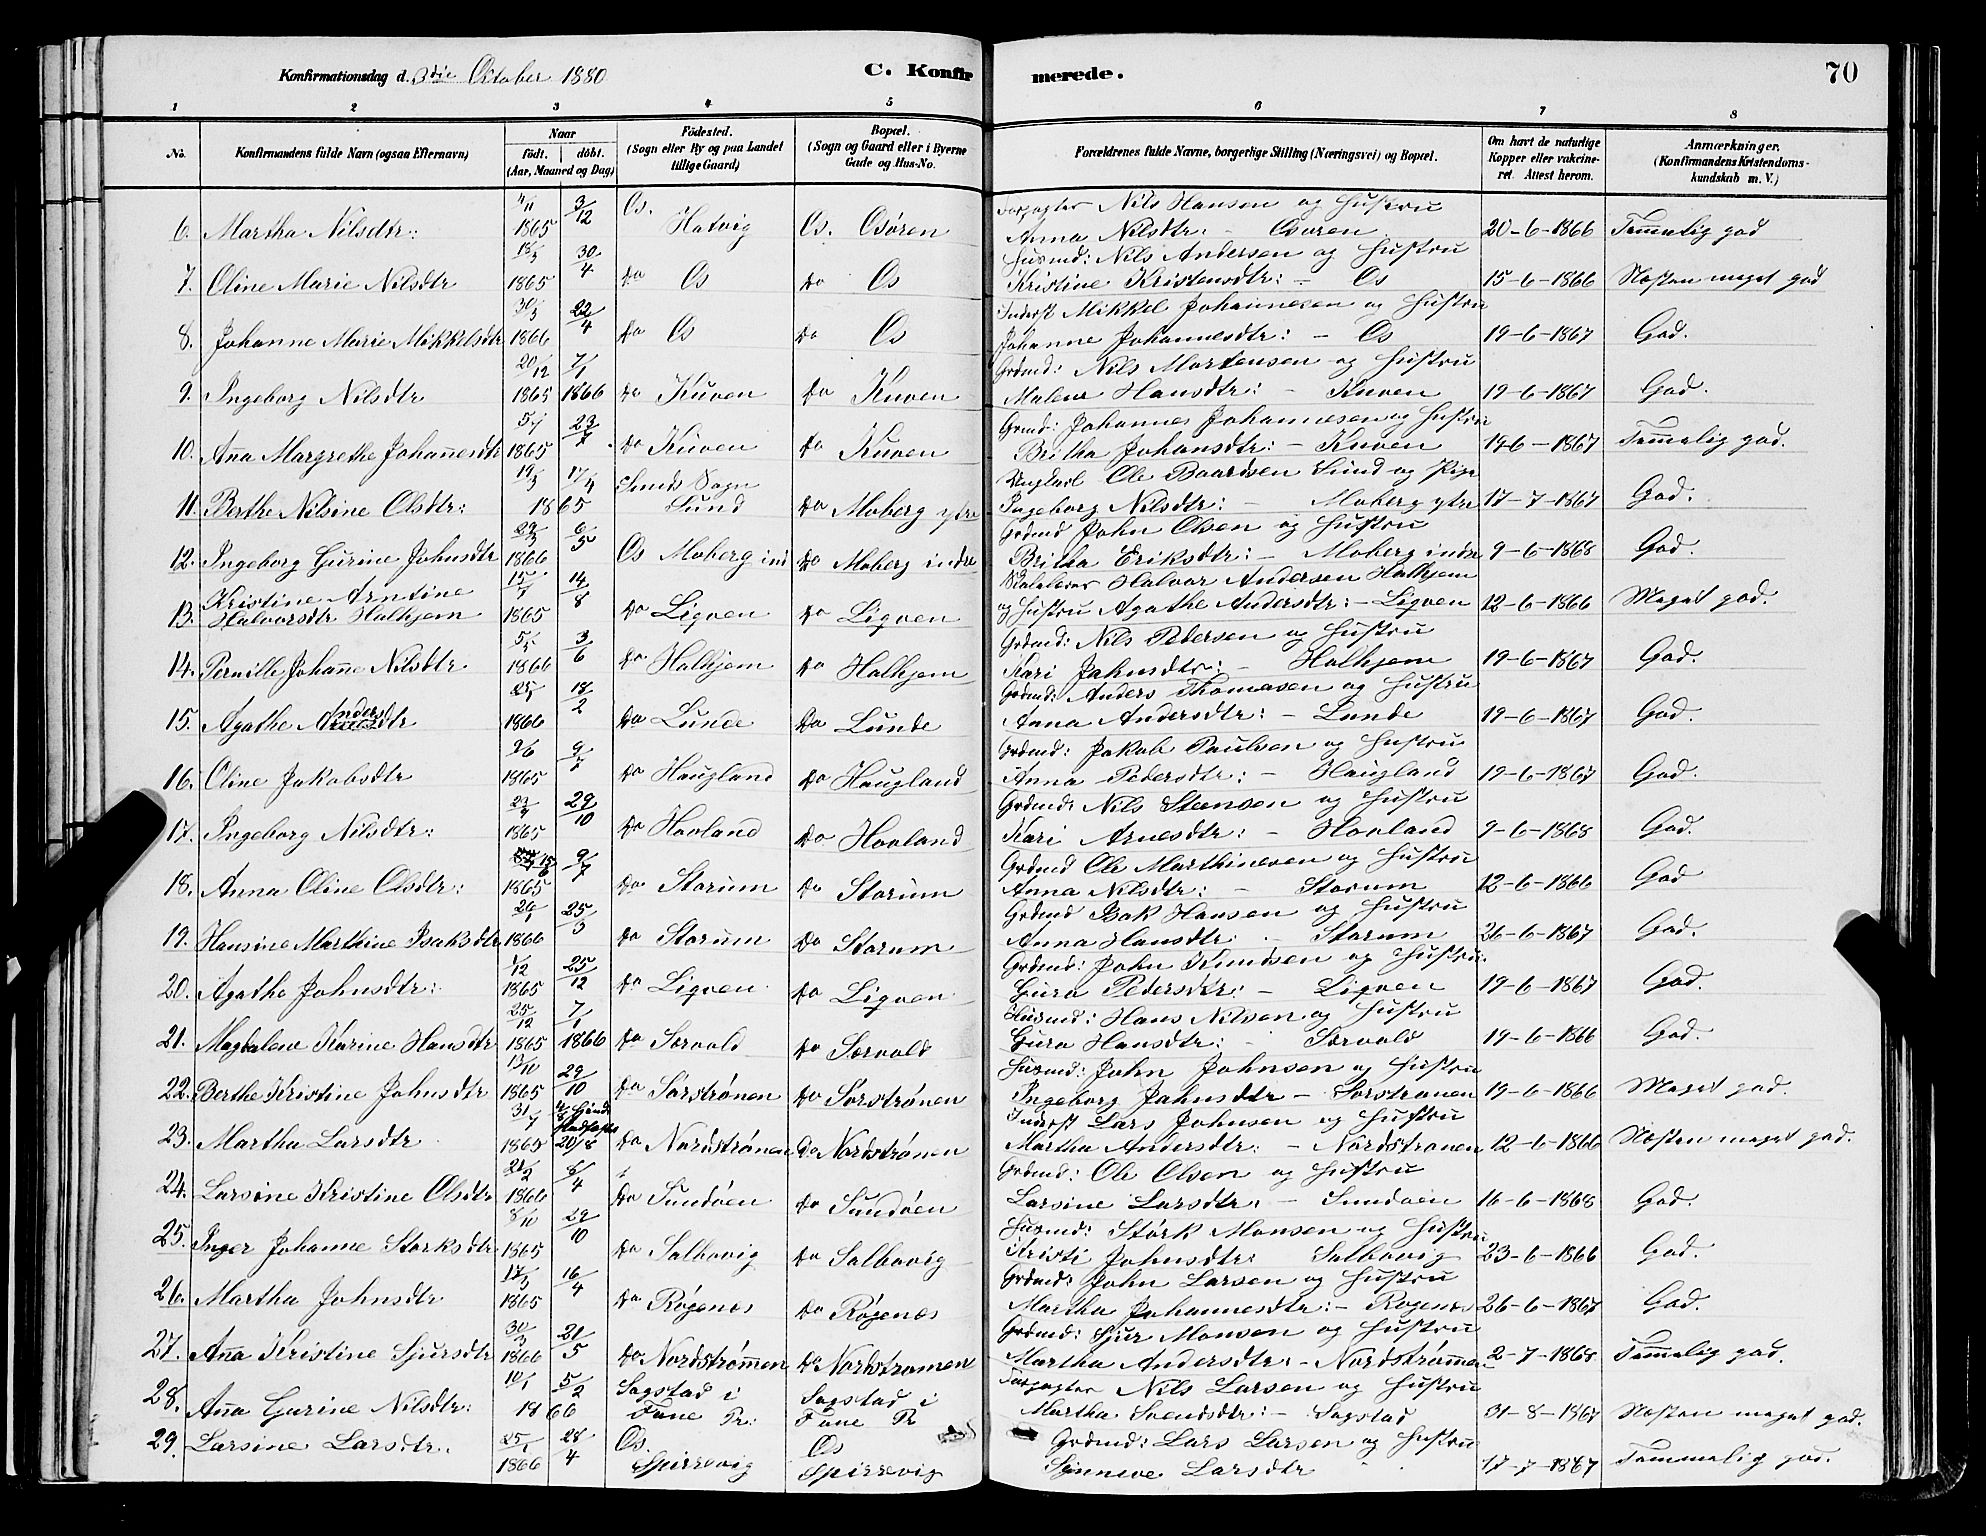 Konfirmationsdag d. 3die October 1880 C. Konfirmerede. 70
1 2 3 4 5 6 7 8
No. Konfirmandens fulde Navn (ogsaa Efternavn) Naar født. døbt. (Aar, Maaned og Dag) Födested. (Sogn eller By og paa Landet tillige Gaard) Bopæl. (Sogn og Gaard eller i Byerne Gade og Hus-No. Forældrenes fulde Navne, borgerlige Stilling (Næringsvei) og Bopæl. Om havt de naturlige Kopper eller vakcineret. Attest herom. Anmærkninger. (Konfirmandens Kristendomskundskab m. V.)
6. Martha Nilsdtr: 1865 3/12 Os. Hatvig Os. Osøren Forpagter Nils Hansen og Hustru
Anna Nilsdtr: – Osøren 20-6-1866 Temmelig god
7. Oline Marie Nilsdtr 1865 30/4 Do Os Do Os Husmd: Nils Andersen og Hustru
Kristine Kristensdtr: – Os 15-6-1866 Næsten meget god
8. Johanne Marie Mikkelsdtr 30/3 1866 22/4 Do Os Do Os Inderst Mikkel Johannesen og Hustru
Johanne Johannesdtr: – Os 19-6-1867 God.
9. Ingeborg Nilsdtr 20/12 1865 7/1 1866 Do Kuven Do Kuven Grdmd: Nils Mortensen og Hustru
Malene Hansdtr: – Kuven 19-6-1867 God.
10. Aña Margrethe Johañesdtr 1865 23/7 Do Kuven Do Kuven Grmd: Johannes Johannesen og Hustru
Britha Johansdtr: – Kuven 19-6-1867 Temmelig god.
11. Berthe Nilsine Olsdtr: 19/3 17/4 1865 Sunds Sogn Sund Do Moberg ytre Ungkarl Ole Baardsen Sund og Pige
Ingeborg Nilsdtr: – Moberg ytre 17-7-1867 God.
12. Ingeborg Gurine Johnsdtr 1866 6/5 Os Moberg ind Do Moberg indre Grdmd John Olsen og Hustru
Britha Eriksdtr: – Moberg indre 9-6-1868 God.
13. Kristine Arntine Halvorsdtr Halhjem 15/7 1865 14/8 Do Ligven Do Ligven Halvor Andersen Halhjem
og Hustru Agathe Andersdtr: – Ligven 12-6-1866 Meget god.
14. Pernille Johañe Nilsdtr 1866 3/6 Do Halhjem Do Halhjem Grdmd: Nils Pedersen og Hustru
Kari Jahnsdtr: – Halhjem 19-6-1867 God.
15. Agathe Andersdtr 25/1 1866 18/2 Do Lunde Do Lunde Grdmd: Anders Thomasen og Hustru
Anna Andersdtr: – Lunde 19-6-1867 God.
16. Oline Jakobsdtr 2/6 1865 9/7 Do Haugland Do Haugland Grdmd: Jakob Paulsen og Hustru
Anna Pedersdtr: – Haugland 19-6-1867 God.
17. Ingeborg Nilsdtr: 1865 29/10 Do Hovland Do Hovland Grdmd: Nils Stensen og Hustru
Kari Arnesdtr: – Hovland 9-6-1868 God.
18. Anna Oline Olsdtr: 1865 9/7 Do Storum Do Storum Grdmd Ole Marthinesen og Hustru
Anna Nilsdtr: – Storum 12-6-1866 God
19. Hansine Marthine Isaksdtr 1866 25/3 Do Storum Do Storum Grdmd Isak Hansen og Hustru
Anna Hansdtr: – Storum 26-6-1867 God.
20. Agathe Johnsdtr: 1/12 1865 25/12 Do Ligven Do Ligven Grdmd: John Knudsen og Hustru
Gura Pedersdtr: – Ligven 19-6-1867 God.
21. Magdalene Karine Hansdtr 25/12 1865 7/1 1866 Do Særvold Do Særvold Husmd: Hans Nilsen og Hustru
Gura Hansdtr: – Særvold 19-6-1866 God.
22. Berthe Kristine Johnsdtr 13/10 1865 29/10 Do Sørstrønen Do Sørstrønen Husmd: John Johnsen og Hustru
Ingeborg Jahnsdtr – Sørstrønen 19-6-1866 Meget god.
23. Martha Larsdtr 31/7 1865 20/8 Do Nordstrønen Do Nordstrønen Inderst Lars Johnsen og Hustru
Martha Andersdtr: – Nordstrønen 12-6-1866 Næsten meget god.
24. Larsine Kristine Olsdtr 1866 8/4 Do Sundøen Do Sundøen Grdmd: Ole Olsen og Hustru
Larsine Larsdtr: – Sundøen 16-6-1868 God.
25. Inger Johanne Størksdtr 8/10 1865 29/10 Do Salbovig Do Salbovig Husmd: Størk Monsen og Hustru
Kristi Johnsdtr: Salbovig 23-6-1866 God.
26. Martha Johnsdtr 17/3 1865 16/4 Do Røgenes Do Røgenæs Grdmd: John Larsen og Hustru
Martha Johannesdtr: – Røgenes 26-6-1867 God.
27. Aña Kristine Sjursdtr 30/3 1866 21/5 Do Nordstrømen Do Nordstrømen Grdmd: Sjur Monsen og Hustru
Martha Andersdtr: – Nordstrømen 2-7-1868 Temmelig god.
28. Aña Gurine Nilsdtr: 10/1 5/2 1866 Søgstad i Fane Pr: Søgstad i Fane Pr Forpagter Nils Larsen og Hustru
Martha Svendsdtr: – Søgstad 31-8-1867 Næsten meget god.
29. Larsine Larsdtr. 25/1 1866 28/4 Os. Spirrevig Os Spirrevig Grdmd: Lars Larsen og Hustru
Synneve Larsdtr 17-7-1867 Temmelig god.